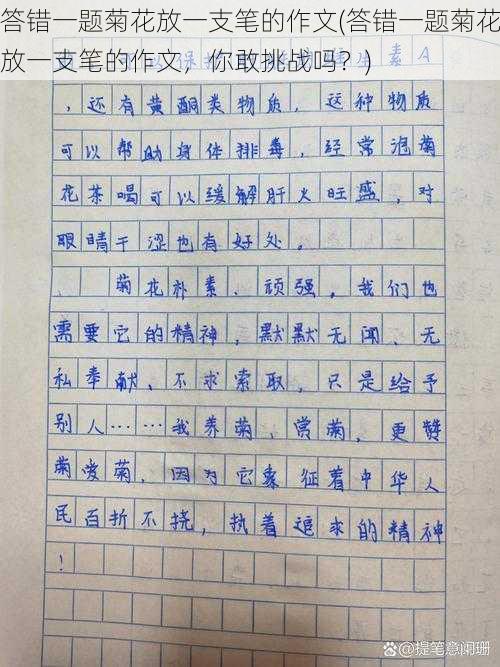 答错一题菊花放一支笔的作文(答错一题菊花
放一支笔的作文，你敢挑战吗？)
生素A
，还有黄酮类物质，这种物质
可以帮助身体排毒，经常泡菊
花茶喝可以缓解肝火旺盛，对
眼睛干涩也有好处。
菊花朴素、顽强。我们也
需要它的精神，默默无闻、无
私奉献、不求索取，只是给予
别人……我养菊，赏菊，更赞
菊爱菊，因为它象征着中华人
民百折不挠，执着追求的精神
！
@提笔意阑珊